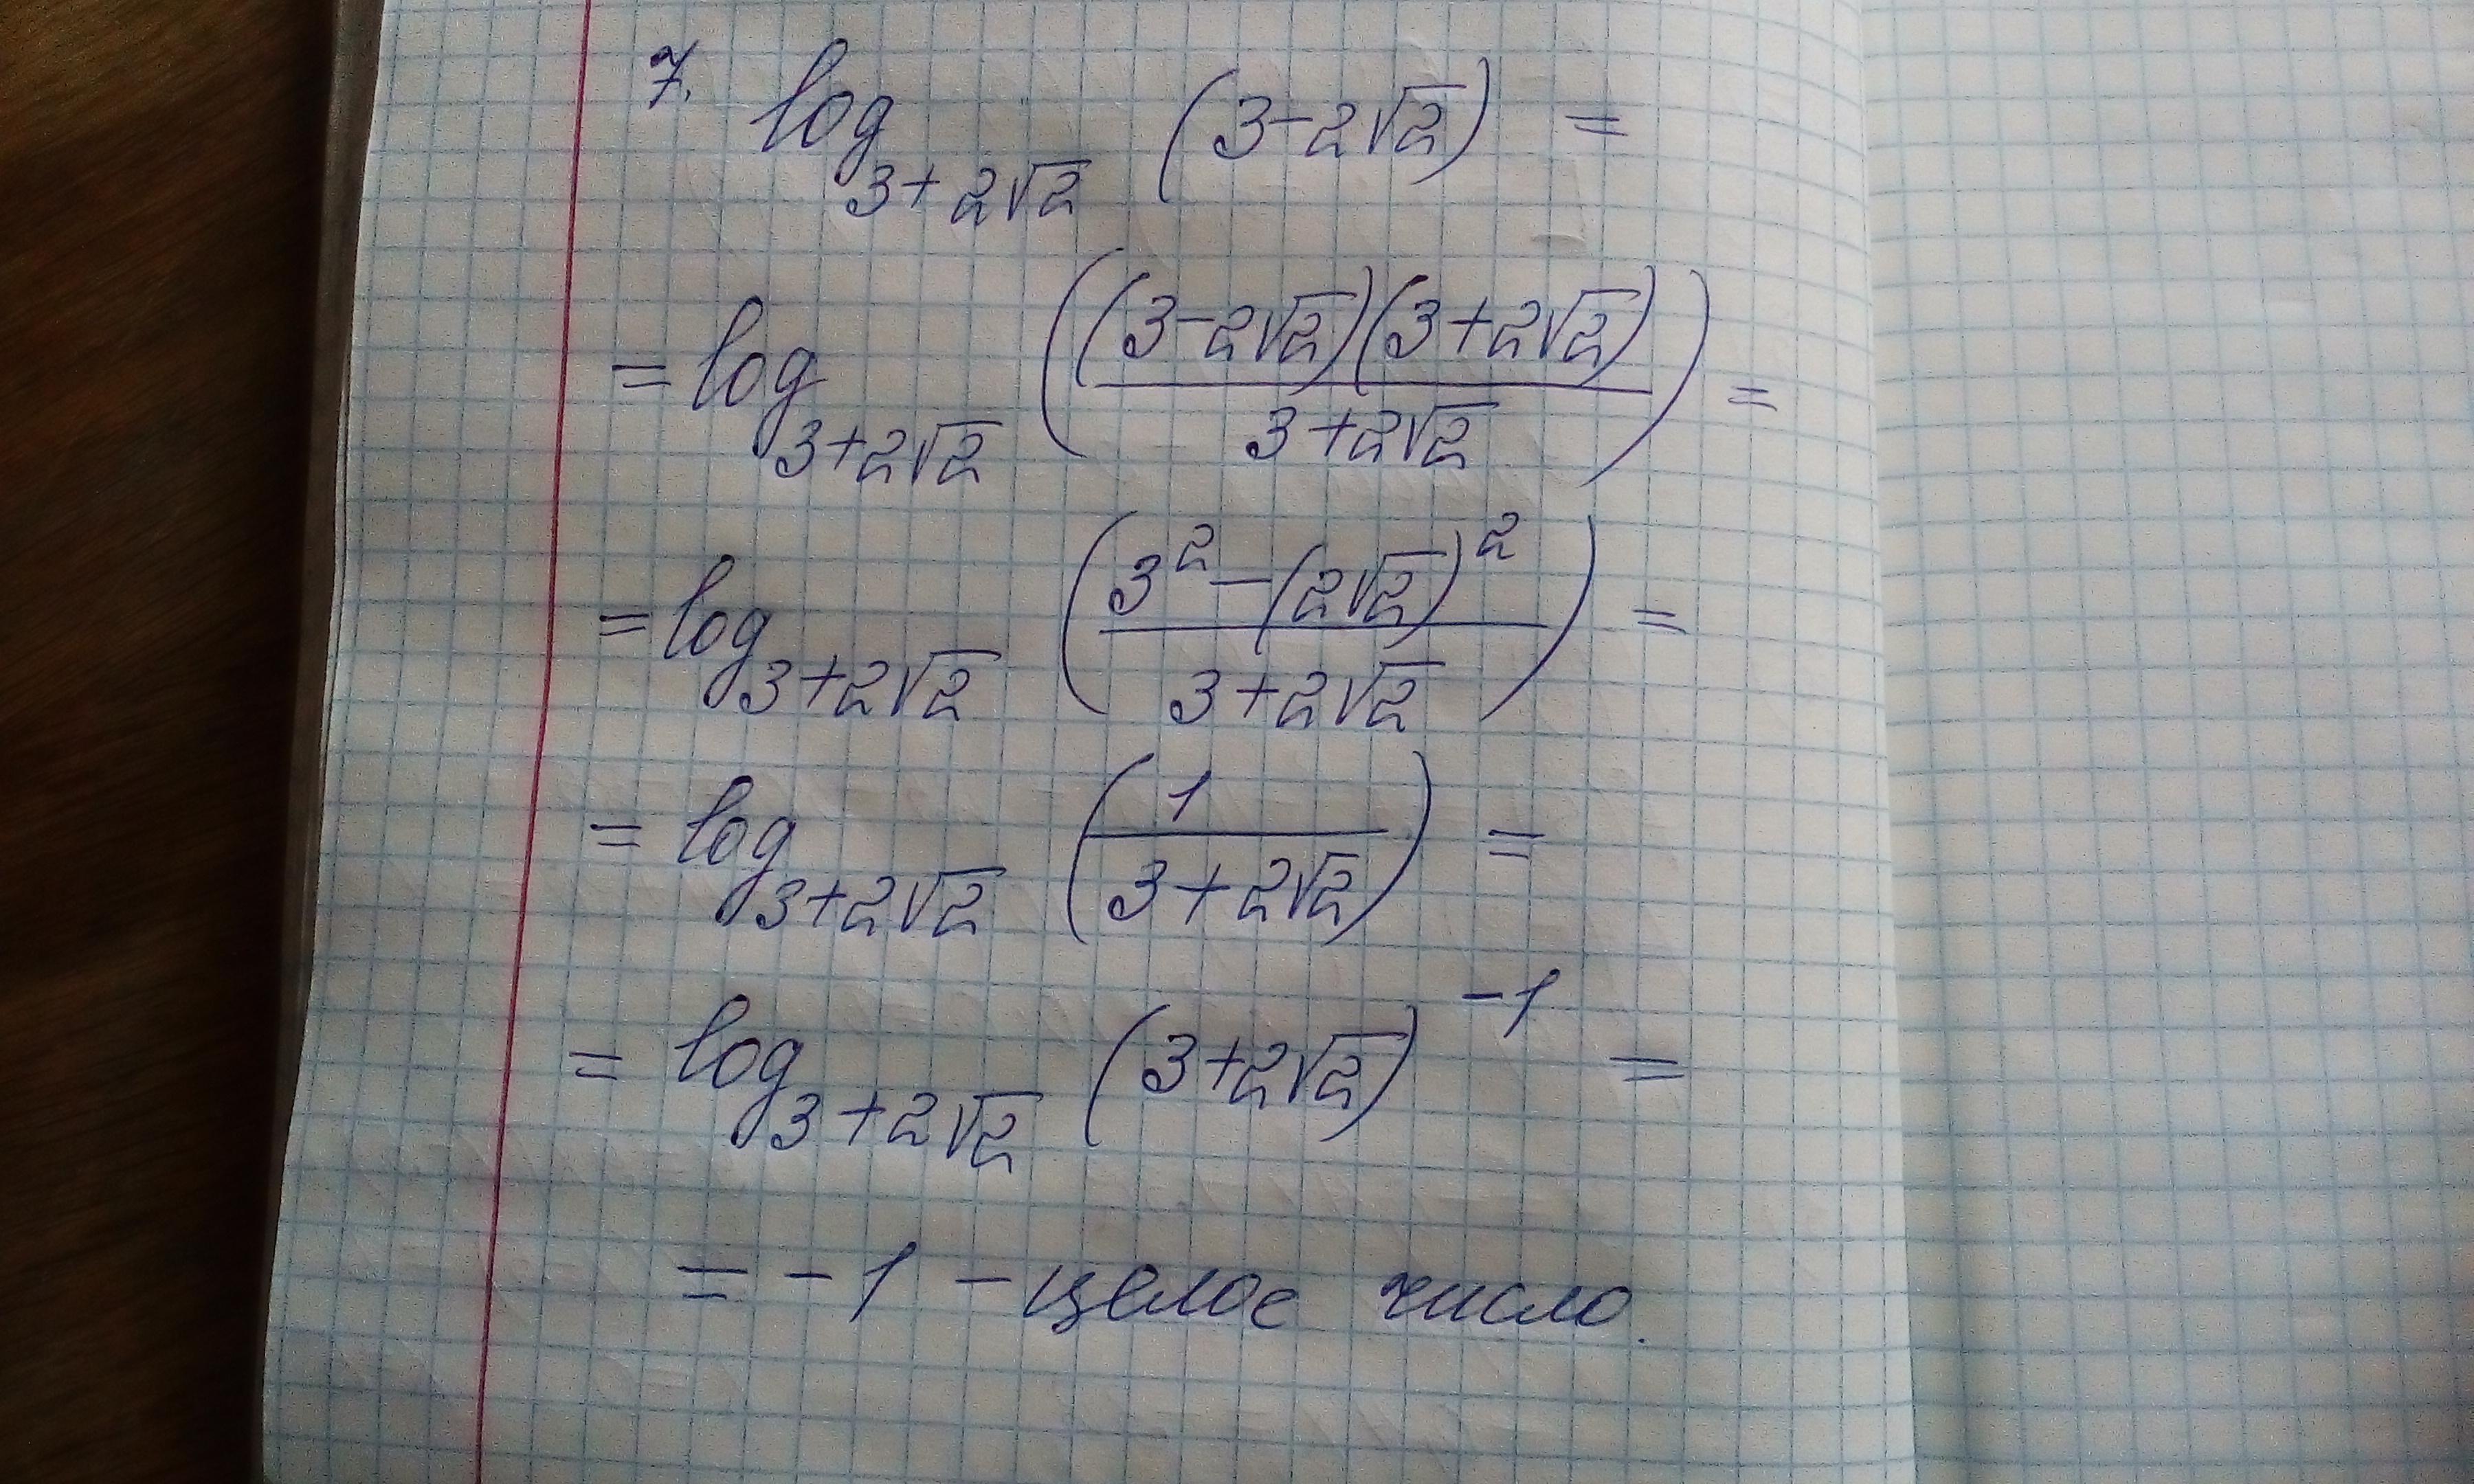 7. log_{3+2√2} (3-2√2) =
= log_{3+2√2} (((3-2√2)(3+2√2))/(3+2√2)) =
= log_{3+2√2} ((3²-(2√2)²)/(3+2√2)) =
= log_{3+2√2} (1/(3+2√2)) =
= log_{3+2√2} (3+2√2)⁻¹ =
= -1 - целое число.